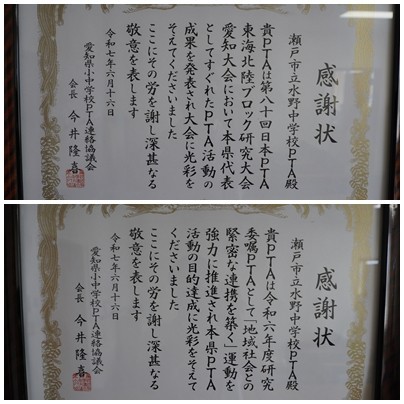 感謝状
瀬戸市立水野中学校PTA殿
貴PTAは第八十回日本PTA
東海北陸ブロック研究大会
愛知大会において本県代表
としてすぐれたPTA活動の
成果を発表され大会に光彩を
そえてくださいました
ここにその労を謝し深甚なる
敬意を表します
令和七年六月十六日
愛知県小中学校PTA連絡協議会
会長 今井隆喜
感謝状
瀬戸市立水野中学校PTA殿
貴PTAは令和六年度研究
委嘱PTAとして「地域社会との
緊密な連携を築く」運動を
強力に推進され本県PTA
活動の目的達成に光彩をそえて
くださいました
ここにその労を謝し深甚なる
敬意を表します
令和七年六月十六日
愛知県小中学校PTA連絡協議会
会長 今井隆喜